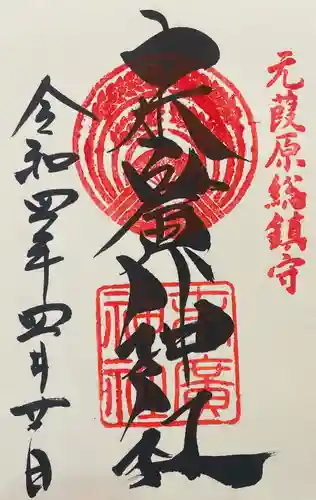 元葭原総鎮守
末廣神社
令和四年四月廿日
末廣神社